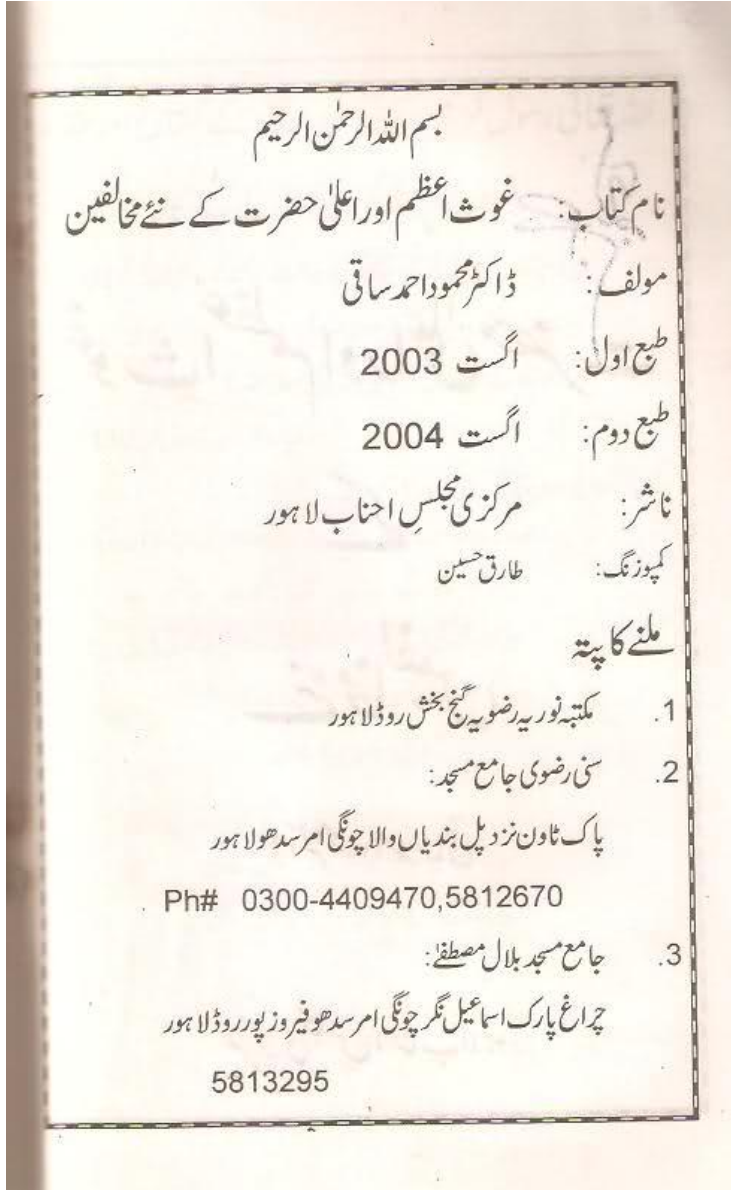 بسم اللہ الرحمٰن الرحیم
نام کتاب: غوث اعظم اور اعلیٰ حضرت کے نئے مخالفین
مولف: ڈاکٹر محمود احمد ساقی
طبع اول: اگست 2003
طبع دوم: اگست 2004
ناشر: مرکزی مجلسِ احناب لاہور
کمپوزنگ: طارق حسین
ملنے کا پتہ
1. مکتبہ نوریہ رضویہ گنج بخش روڈ لاہور
2. سنی رضوی جامع مسجد:
پاک ٹاون نزد پل بندیاں والا چونگی امر سدھو لاہور
Ph# 0300-4409470,5812670
3. جامع مسجد بلال مصطفےٰ:
چراغ پارک اسماعیل نگر چونگی امر سدھو فیروز پور روڈ لاہور
5813295